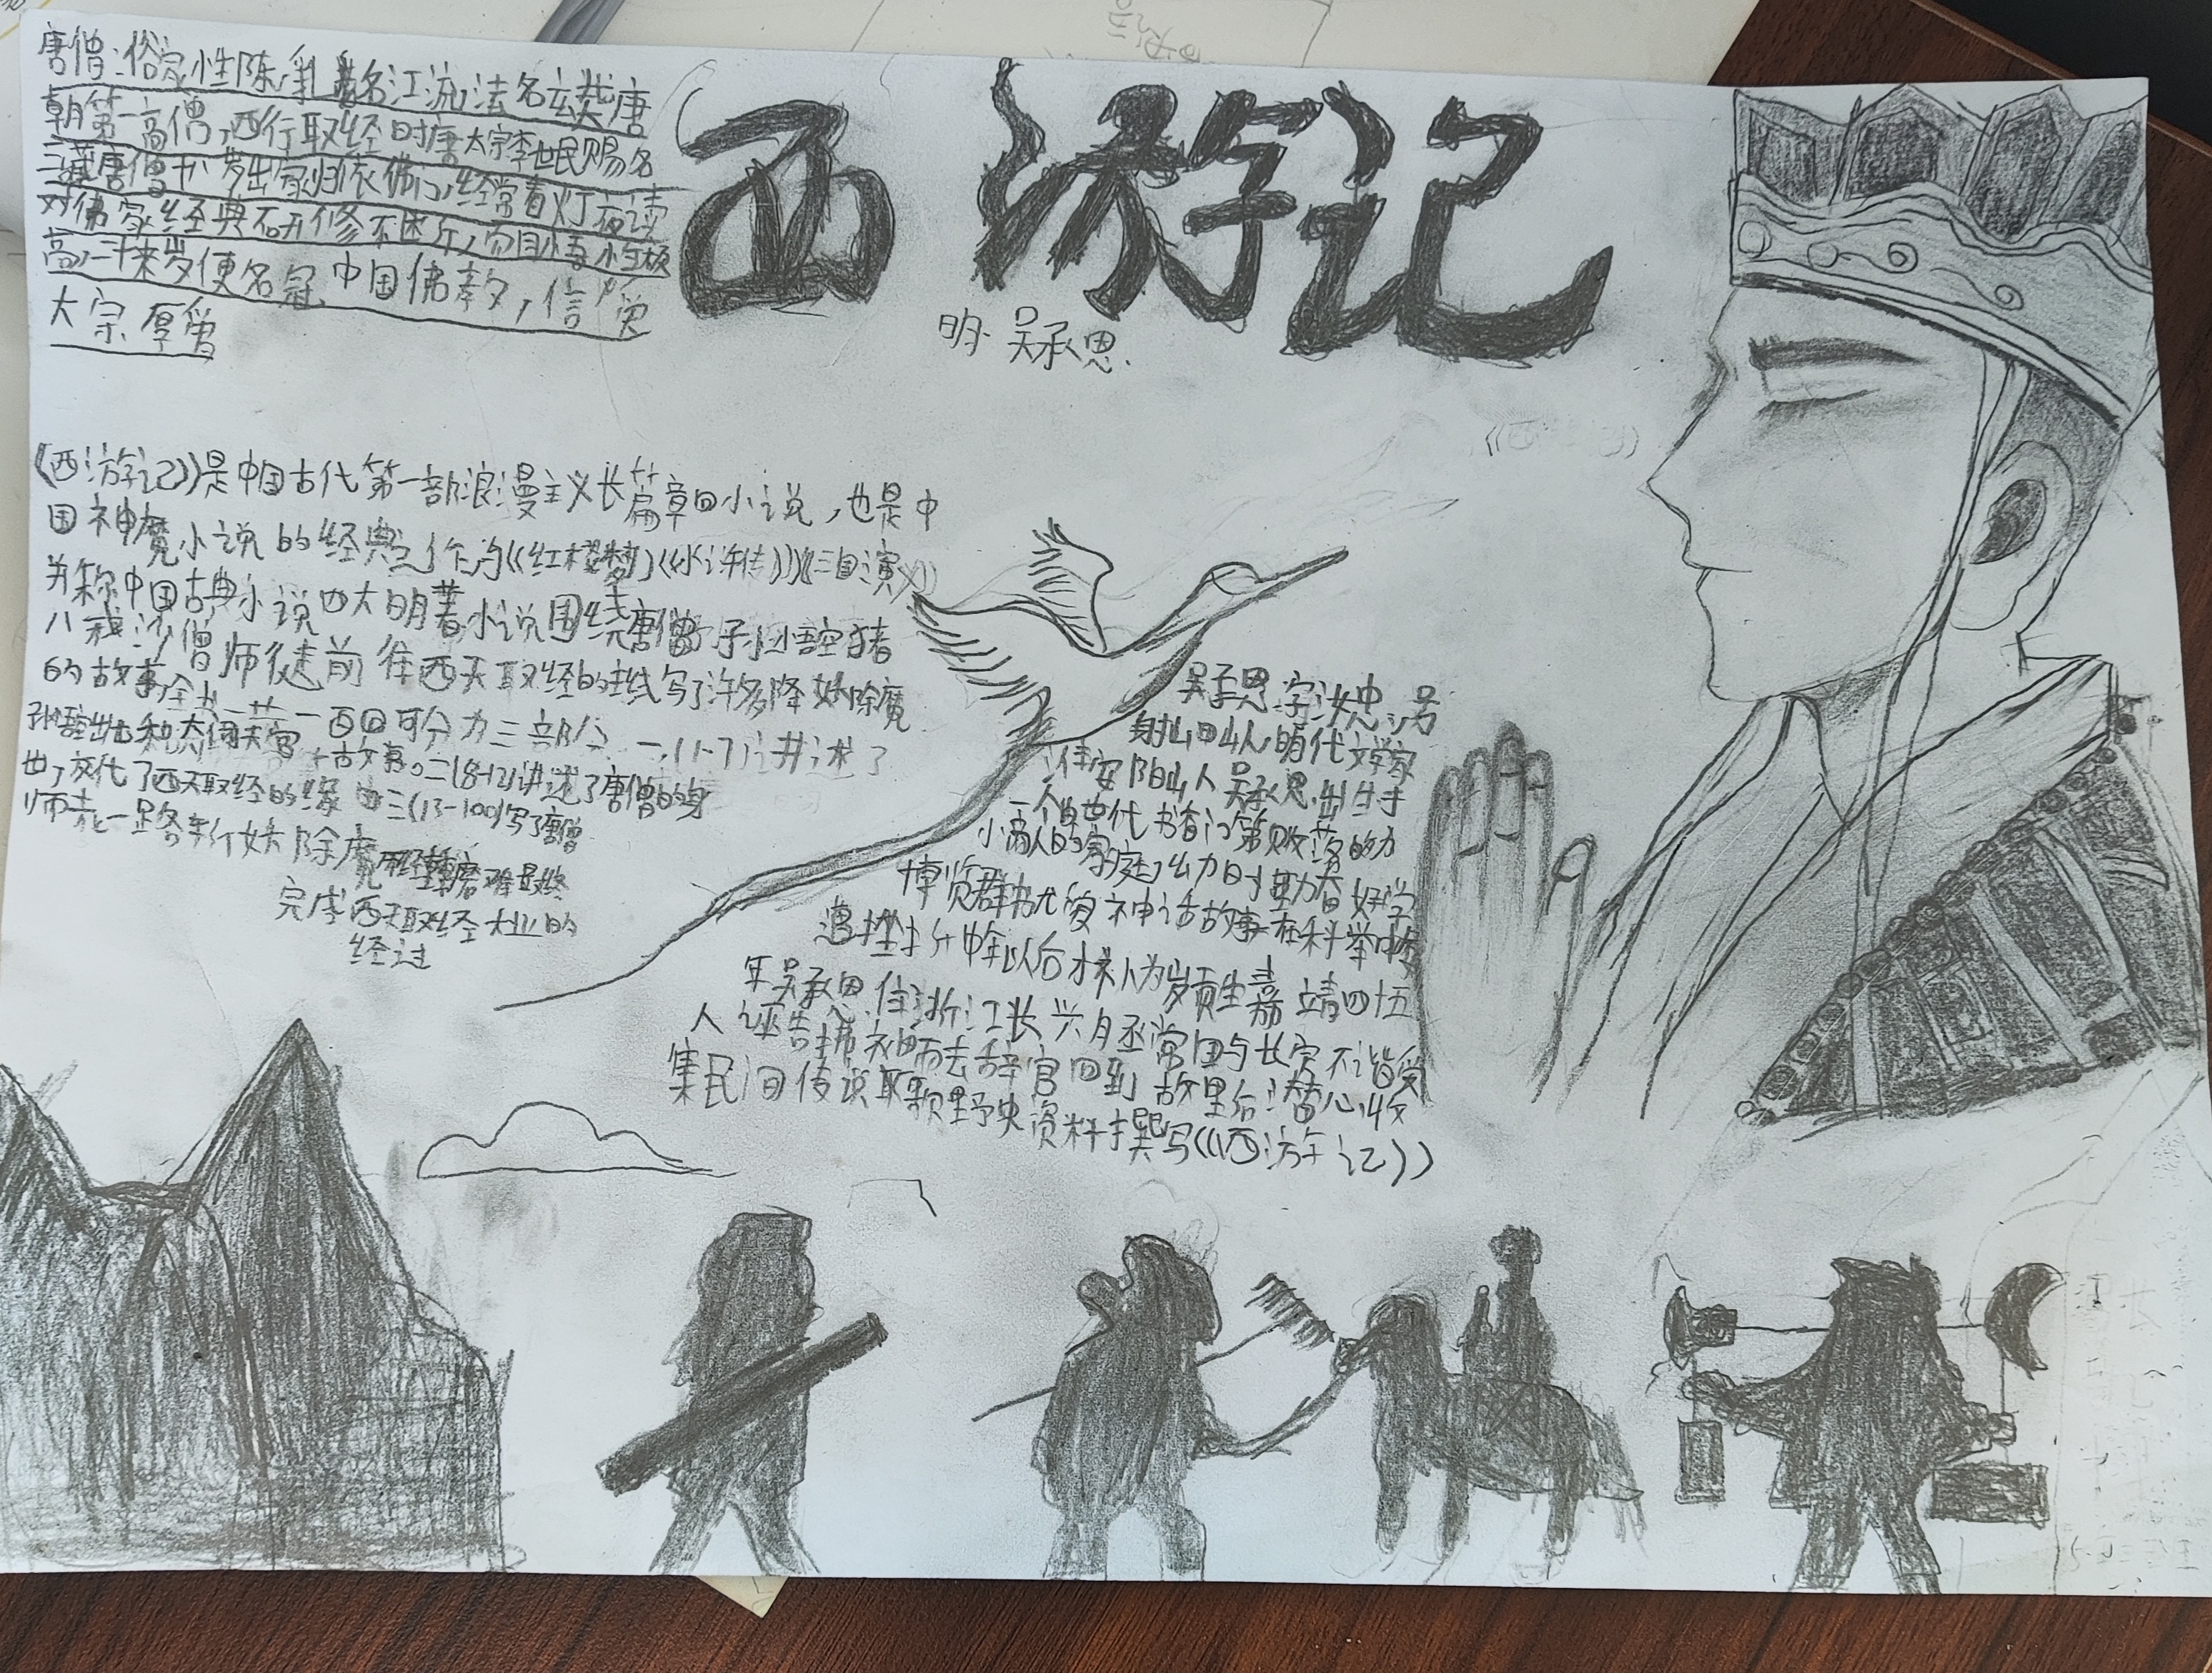 西游记
明·吴承恩
唐僧:俗家性陈,乳名江流法名玄奘唐
朝第一高僧,西行取经时唐太宗李世民赐名
三藏唐僧十八岁出家归依佛门,经常看灯夜读
对佛家经典研修不断,而且悟性极
高,二十来岁便名冠中国佛教,信
大宗厚爱
《西游记》是中国古代第一部浪漫主义长篇章回小说,也是中
国神魔小说的经典之作为《红楼梦》《水浒传》《三国演义》
并称中国古典小说四大明著小说围绕唐僧孙悟空猪
八戒沙僧师徒前往西天取经的主线写了许多降妖除魔
的故事全书一共一百回可分为三部分 一,(1-7)讲述了
孙悟空出世和大闹天宫 故事。二(8-12)讲述了唐僧的身
世,交代了西天取经的缘由三(13-100)写了唐僧
师走一路 妖除魔 磨难最终
完成西天取经大业的
经过
吴承恩,字汝忠,号
射山 明代文学家
淮安 山 人吴承恩出生于
一个 世代书香门第败落的
小商人的家庭, 时勤奋好学
博览群书尤 神话故事在科举中
年以后才 为岁贡生嘉靖四十五
年吴承恩任浙江长兴 丞常 与长官不谐受
人诬告 而去辞官回到故里后潜心收
集民间传说 野史资料撰写《西游记》